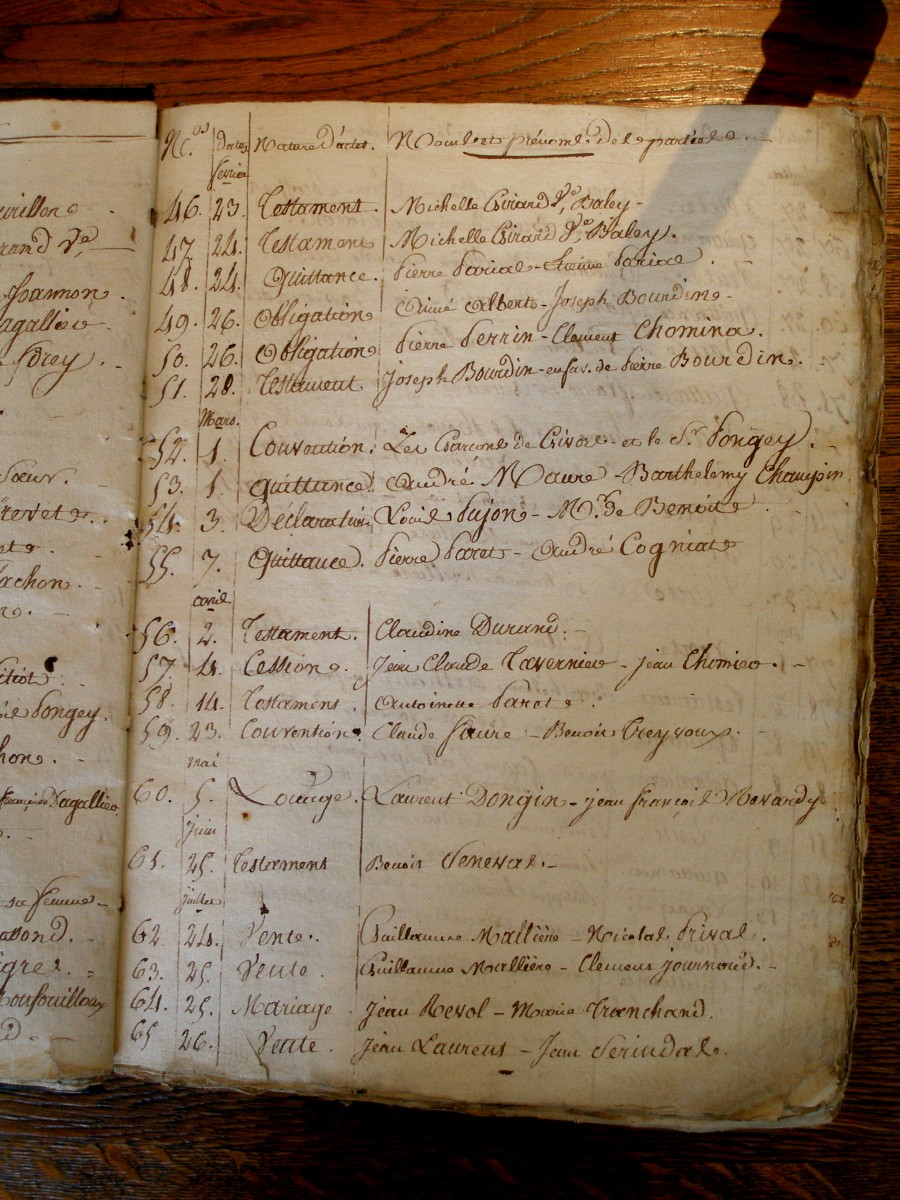 urillon.
rand Ve.
hannon.
agallier
Forey.
Sœur.
revet.
et.
achon.
n.
Pongey.
hon.
françois Dagallier
sa femme
assond.
igres.
d.
N.os Dates Nature d'actes. Noms et prénoms de les parties.
février
46. 23. Testament. Michelle Girard Ve. Baley
47. 24. Testament Michelle Girard Ve. Baley.
48. 24. Quittance. Pierre Parial - Etienne Parial
49. 26. Obligation Aimé Albert - Joseph Bourdin
50. 26. Obligation Pierre Perrin - Clement Chomina.
51. 28. Testament Joseph Bourdin - en fav. de Pierre Bourdin.
Mars.
52. 1. Convention. Les Garçons de Givors - et le Sr. Pongey.
53. 1. Quittance. André Maure - Barthelemy Chaupin
54. 3. Déclaration Louis Pujon - Mr. de Benoit
55. 7. Quittance. Pierre Paret - André Cogniat
avril.
56. 2. Testament. Claudine Durand.
57. 4. Cession. Jean Claude Tavernier - Jean Chomier.
58. 14. Testament. Antoinette Paret.
59. 23. Convention. Claude Faure - Benoit Treyvoux.
mai
60. 5. Louage. Laurent Dongin - jean françois Novardy
juin
61. 25. Testament Benoit Seneval.
juillet
62. 24. Vente. Guillaume Mallière - Nicolas Prival.
63. 25. Vente. Guillaume Mallière - Clement Journoud.
64. 25. Mariage Jean Revol - Marie Tranchand.
65 26. Vente. Jean Laurent - Jean Serindal.